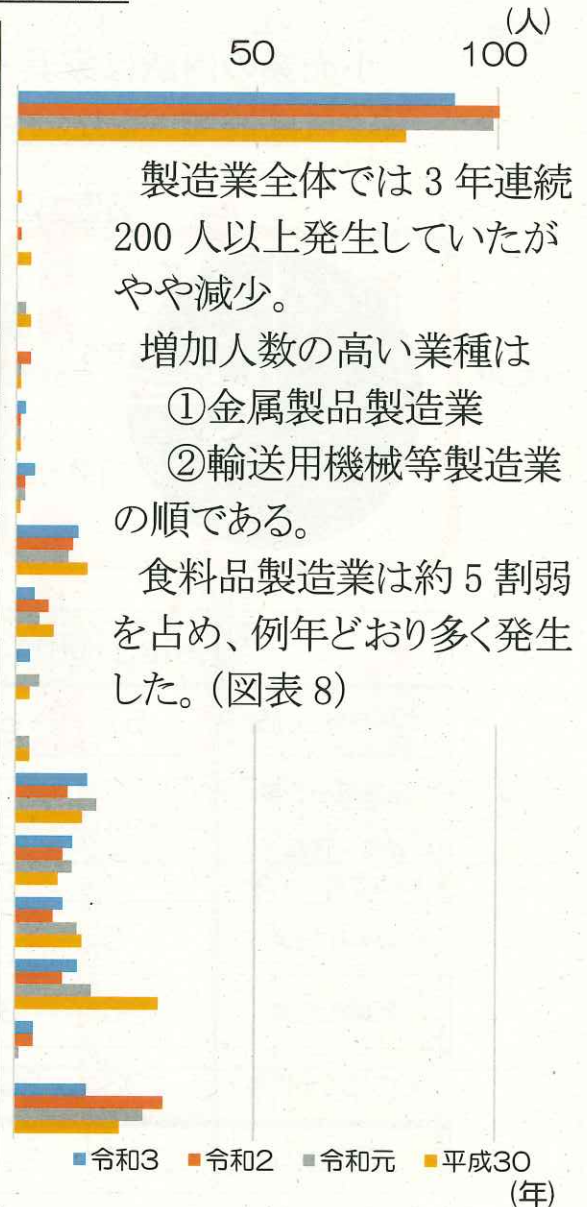 (人)
50 100
製造業全体では3年連続
200人以上発生していたが
やや減少。
増加人数の高い業種は
①金属製品製造業
②輸送用機械等製造業
の順である。
食料品製造業は約5割弱
を占め、例年どおり多く発生
した。(図表8)
令和3 令和2 令和元 平成30
(年)